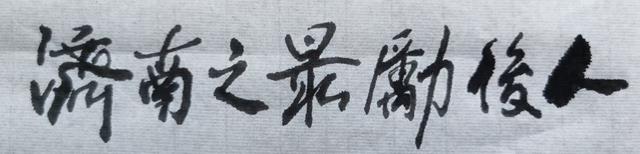 濟南之最勵後人